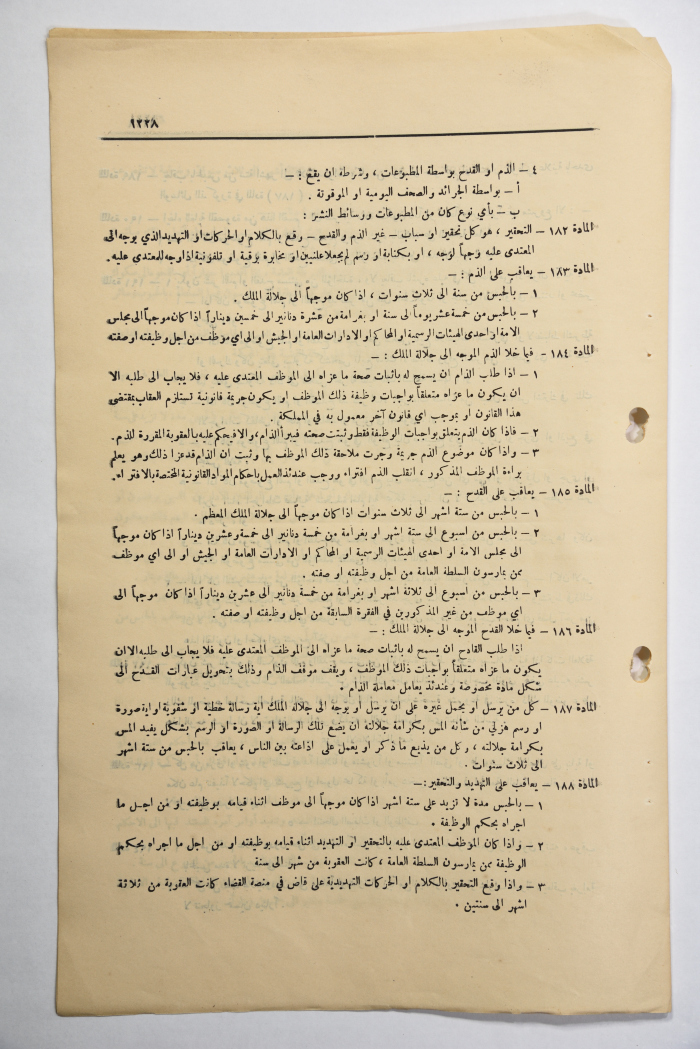 ١٢٣٨
٤ – الذم او القدح بواسطة المطبوعات ، وشرطه ان يقع : –
أ – بواسطة الجرائد والصحف اليومية او الموقوتة .
ب – بأي نوع كان من المطبوعات ووسائط النشر :
المادة ١٨٢ – التحقير ، هو كل تحقير او سباب – غير الذم والقدح – وقع بالكلام او الحركات او التهديد الذي يوجه الى
المعتدى عليه وجهاً لوجه ، او بكتابة او رسم لم يجعلا علنيين او مخابرة برقية او تلفونية اذا وجه للمعتدى عليه.
المادة ١٨٣ – يعاقب على الذم : –
١ – بالحبس من سنة الى ثلاث سنوات ، اذا كان موجهاً الى جلالة الملك .
٢ – بالحبس من خمسة عشر يوماً الى سنة او بغرامة من عشرة دنانير الى خمسين ديناراً اذا كان موجهاً الى مجلس
الامة او احدى الهيئات الرسمية او المحاكم او الادارات العامة او الجيش او الى اي موظف من اجل وظيفته او صفته
المادة ١٨٤ – فيما خلا الذم الموجه الى جلالة الملك : –
١ – اذا طلب الذام ان يسمح له باثبات صحة ما عزاه الى الموظف المعتدى عليه ، فلا يجاب الى طلبه الا
ان يكون ما عزاه متعلقاً بواجبات وظيفة ذلك الموظف او يكون جريمة قانونية تستلزم العقاب بمقتضى
هذا القانون او بموجب اي قانون آخر معمول به في المملكة .
٢ – فاذا كان الذم يتعلق بواجبات الوظيفة فقط وثبتت صحته فيبرأ الذام ، والا فيحكم عليه بالعقوبة المقررة للذم.
٣ – واذا كان موضوع الذم جريمة وجرت ملاحقة ذلك الموظف بها وثبت ان الذام قد عزا ذلك وهو يعلم
براءة الموظف المذكور ، انقلب الذم افتراء ووجب عندئذ العمل باحكام المواد القانونية المختصة بالافتراء.
المادة ١٨٥ – يعاقب على القدح : –
١ – بالحبس من ستة اشهر الى ثلاث سنوات اذا كان موجهاً الى جلالة الملك المعظم .
٢ – بالحبس من اسبوع الى ستة اشهر او بغرامة من خمسة دنانير الى خمسة وعشرين ديناراً اذا كان موجهاً
الى مجلس الامة او احدى الهيئات الرسمية او المحاكم او الادارات العامة او الجيش او الى اي موظف
ممن يمارسون السلطة العامة من اجل وظيفته او صفته .
٣ – بالحبس من اسبوع الى ثلاثة اشهر او بغرامة من خمسة دنانير الى عشرين ديناراً اذا كان موجهاً الى
اي موظف من غير المذكورين في الفقرة السابقة من اجل وظيفته او صفته .
المادة ١٨٦ – فيما خلا القدح الموجه الى جلالة الملك : –
اذا طلب القادح ان يسمح له باثبات صحة ما عزاه الى الموظف المعتدى عليه فلا يجاب الى طلبه الا ان
يكون ما عزاه متعلقاً بواجبات ذلك الموظف ، ويقف موقف الذام وذلك بتحويل عبارات القدح الى
شكل مادة مخصوصة وعندئذ يعامل معاملة الذام .
المادة ١٨٧ – كل من يرسل او يحمل غيره على ان يرسل او يوجه الى جلالة الملك اية رسالة خطية او شفوية او اية صورة
او رسم هزلي من شأنه المس بكرامة جلالته ان يضع تلك الرسالة او الصورة او الرسم بشكل يفيد المس
بكرامة جلالته ، وكل من يذيع ما ذكر او يعمل على اذاعته بين الناس ، يعاقب بالحبس من ستة اشهر
الى ثلاث سنوات .
المادة ١٨٨ – يعاقب على التهديد والتحقير: –
١ – بالحبس مدة لا تزيد على ستة اشهر اذا كان موجهاً الى موظف اثناء قيامه بوظيفته او من اجل ما
اجراه بحكم الوظيفة .
٢ – واذا كان الموظف المعتدى عليه بالتحقير او التهديد اثناء قيامه بوظيفته او من اجل ما اجراه بحكم
الوظيفة ممن يمارسون السلطة العامة ، كانت العقوبة من شهر الى سنة
٣ – واذا وقع التحقير بالكلام او الحركات التهديدية على قاض في منصة القضاء كانت العقوبة من ثلاثة
اشهر الى سنتين .